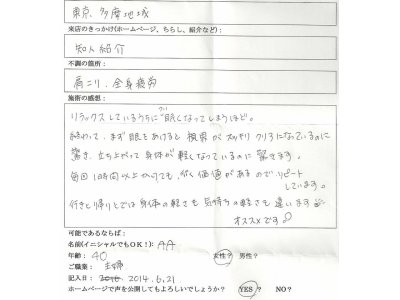 東京、多摩地域
来店のきっかけ(ホームページ、ちらし、紹介など):
知人紹介
不調の箇所:
肩こり、全身疲労
施術の感想:
リラックスしているうちに眠くなってしまうほど。
終わって、まず眼をあけると視界がスッキリクリアになっているのに
驚き、立ち上がって身体が軽くなっているのに驚きます。
毎回1時間以上かけても、行く価値があるので、リピート
しています。
行きと帰りとでは身体の軽さも気持ちの軽さも違います
オススメです
可能であるならば:
名前(イニシャルでもOK!): AA
年齢: 40 女性? 男性?
ご職業: 主婦
記入日: 2014.6.21
ホームページで声を公開してもよろしいでしょうか? YES? NO?